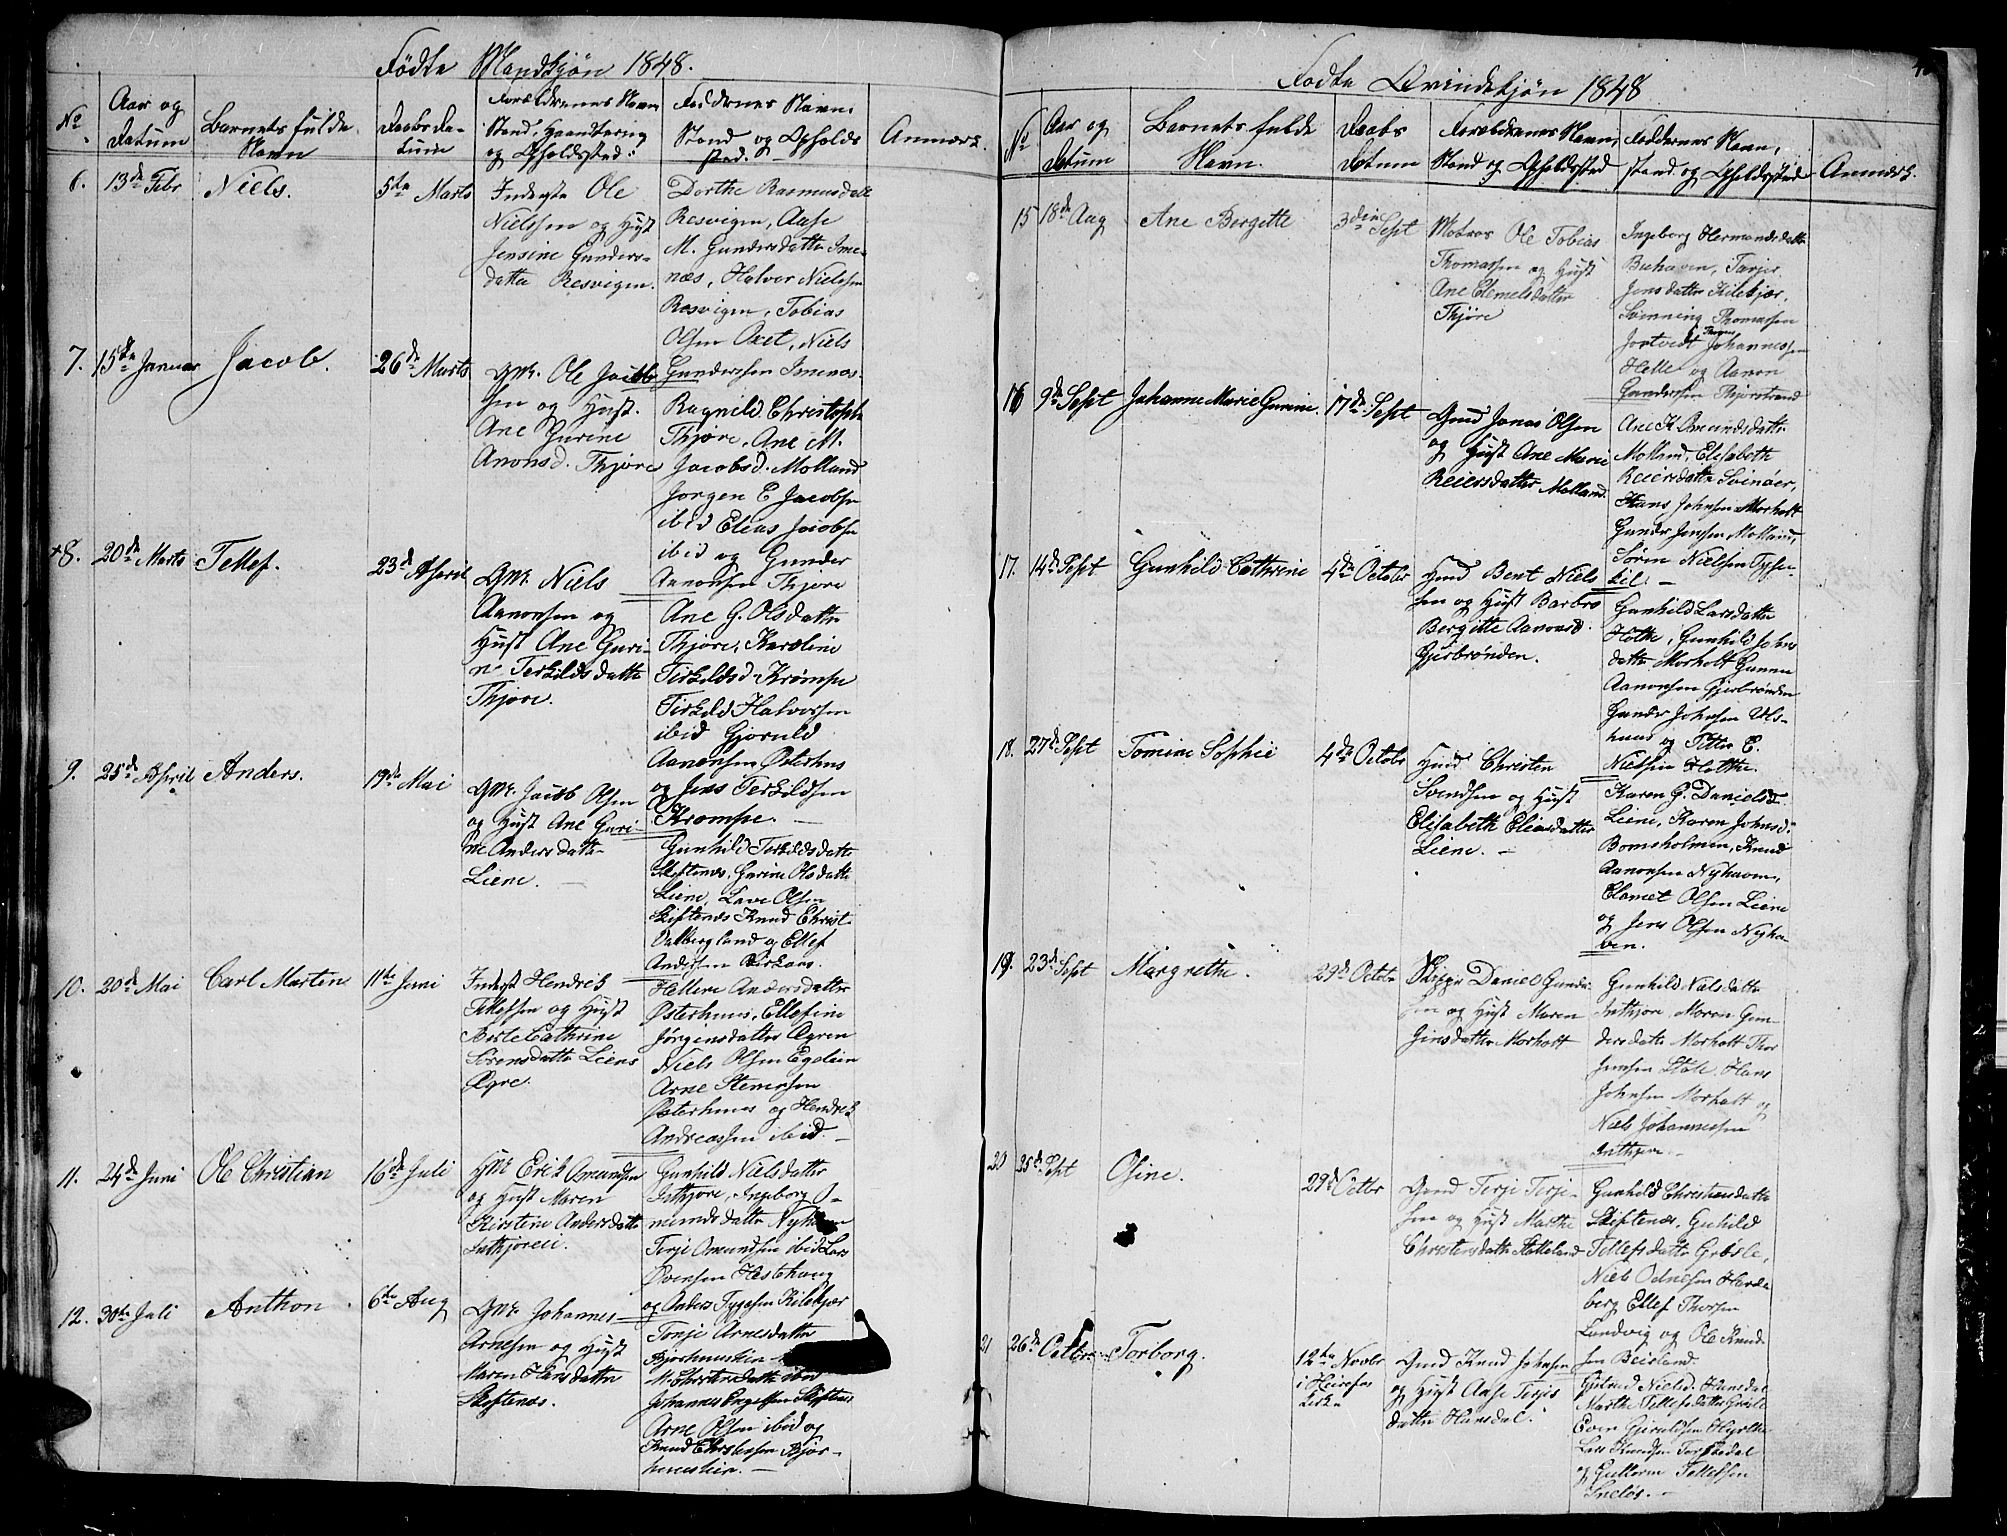 Fødte Mandkjøn 1848.
No
Aar og
Datum
Barnets fulde
Navn
Daabsda-
tum
Forældrenes Navn
Stand, Haandtering
og Opholdssted.
Faddernes Navn,
Stand og Opholds
sted.
Anmærk.
6. 13de Febr
Niels.
5te Marts
Inderste Ole
Nielssen og Hust
Jensine Gunders-
datter Resvigen.
Dorthe Rasmusdatt
Resvigen, Aase
M. Gundersdatter Ime-
næs, Halvor Nielssen
Resvigen, Tobias
Olsen Oxet, Niels
Gunderssen Imenæs.
7. 15de Januar
Jacob.
26de Marts
Gmd. Ole Jacob-
sen og Hust.
Ane Gurine
Anonsd. Thjøre
Ragnild Christophs
Thjøre, Ane M.
Jacobsd. Molland
Jørgen E Jacobsen
ibid Elias Jacobsen
ibid og Gunder
Aanonsen Thjøre
+8. 20de Marts
Tellef.
23de April
Gmd. Niels
Aanonsen og
Hust Ane Guri-
ne Terkildsdatter
Thjøre.
Ane G. Olsdatter
Thjøre, Karoline
Terkildsd. Krømpe
Terkild Halvorsen
ibid Gjeruld
Aanonsen Østerhus
og Jens Terkildsen
Krømpe.
9. 25de April
Anders.
19de Mai
Gmd. Jacob Olsen
og Hust Ane Guri-
ne Andersdatter
Liene.
Gunhild Terkildsdatter
Skiftenæs, Gurine Olsdatter
Liene, Lars Olsen
Skiftenæs Knud Christ.
Dalbergland og Ellef
Andersen Birkaas.
10. 20de Mai
Carl Martin
11te Juni
Inderst Hendrik
Tellefsen og Hust
Aasle Cathrine
Sørensdatter Liens
Øgre.
Hellene Andersdatter
Østerhus, Ellefine
Jørgensdatter Øgren
Niels Olsen Egelien
Arne Stensen
Østerhuus og Hendrik
Andreassen ibid.
11. 24de Juni
Ole Christian
16de Juli
Hmd Erik Omundsen
og Hust Maren
Kirstine Andersdatter
Inthjøreii.
Gunhild Nielsdatter
Inthjøre, Ingeborg O-
mundsdatter Nyhaven
Terje Omundsen ibid Lars
Evensen Hestehaug
og Anders Tygesen Kilekjær
12. 30te Juli
Anthon
6te Aug
Gmd. Johannes
Arnesen og Hust
Maren Larsdatter
Skiftenæs.
Tonje Arnesdatter
Bjorhuustien
M. Christensdatter ibid
Johannes Engelsen Skiftenæs
Arne Olsen ibid og
Knud Christensen Bjør-
huustien.
Fødte Qvindekjøn 1848
No
Aar og
Datum
Barnets fulde
Navn.
Daabs
Datum
Forældrenes Navn,
Stand og Opholdssted
Faddernes Navn,
stand og Opholdssted
Anmærk.
15 18de Aug
Ane Bergette
3die Sept
Matros Ole Tobias
Thomassen og Hust
Ane Clemetsdatter
Thjøre
Ingeborg Hermandsdatter
Buhaven, Tarjer
Jensdatter Kilekjær,
Svenning Thomassen
Jortvedt Thomas Johannessen
Helle og Aanon
Gundersen Thjørstrand
16 9de Sept
Johanne Marie Gurine.
17de Sept
Gmd Jonas Olsen
og Hust Ane Marie
Reiersdatter Molland.
Ane K. Omundsdatter
Molland, Elisabeth
Reiersdatter Svinøer,
Hans Johnsen Morholt
Gunder Jensen Molland,
Søren Nielsen Tysse-
kil.
17. 14de Sept
Gunhild Cathrine
4de Octobr
Hmd Bent Niels
sen og Hust Barbro
Bergitte Aanonsd.
Gjerbrønden.
Gunhild Larsdatter
Holte, Gunhild Johns
datter Morholt Gunne
Aanonsen Gjerbrønden
Gunder Johnsen Uls-
huus og Petter E.
Nielsen Holthe.
18. 27de Sept
Tomine Sophie
4de Octobr
Hmd Christen
Svendsen og Hust
Elisabeth Eliasdatter
Liene.
Karen G. Danielsd.
Liene, Karen Johnsd.
Bomsholmen, Knud
Aanonsen Nyhaven,
Clemet Olsen Liene
og Jens Olsen Nyha-
ven.
19. 23de Sept
Margrethe.
29de Octobr
Skipper Daniel Gunder
sen og Hust Maren
Jensdatter Morholt
Gunhild Nielsdatter
Inthjøre Maren Gun-
dersdatter Morholt Thor
Jensen Støle, Hans
Johnsen Morholt og
Niels Johannessen
Inthjøre.
20 25de Sept
Osine.
29de Octbr
Gmd Terje Terje-
sen og Hust Marthe
Christensdatter Støleland
Gunhild Christiansdatter
Skiftenæs, Gunhild
Tellefsdatter Grøsle,
Niels Odnesen Harde
berg Ellef Thorsen
Landvig og Ole Knud-
sen Beisland.
21 26de Octbr
Torborg.
12te Novbr
i Heirefos
Kirke
Gmd Knud Johnsen
og Hust Aase Terjes
datter Hunsdal.
Gutred Nielsd. Hunsdal
Marthe Tellefsdatter Grøsle
Even Gjeruldsen Hegelthe
Lars Knudsen Torskedal
og Guttorm Tellefsen
Sneløs.